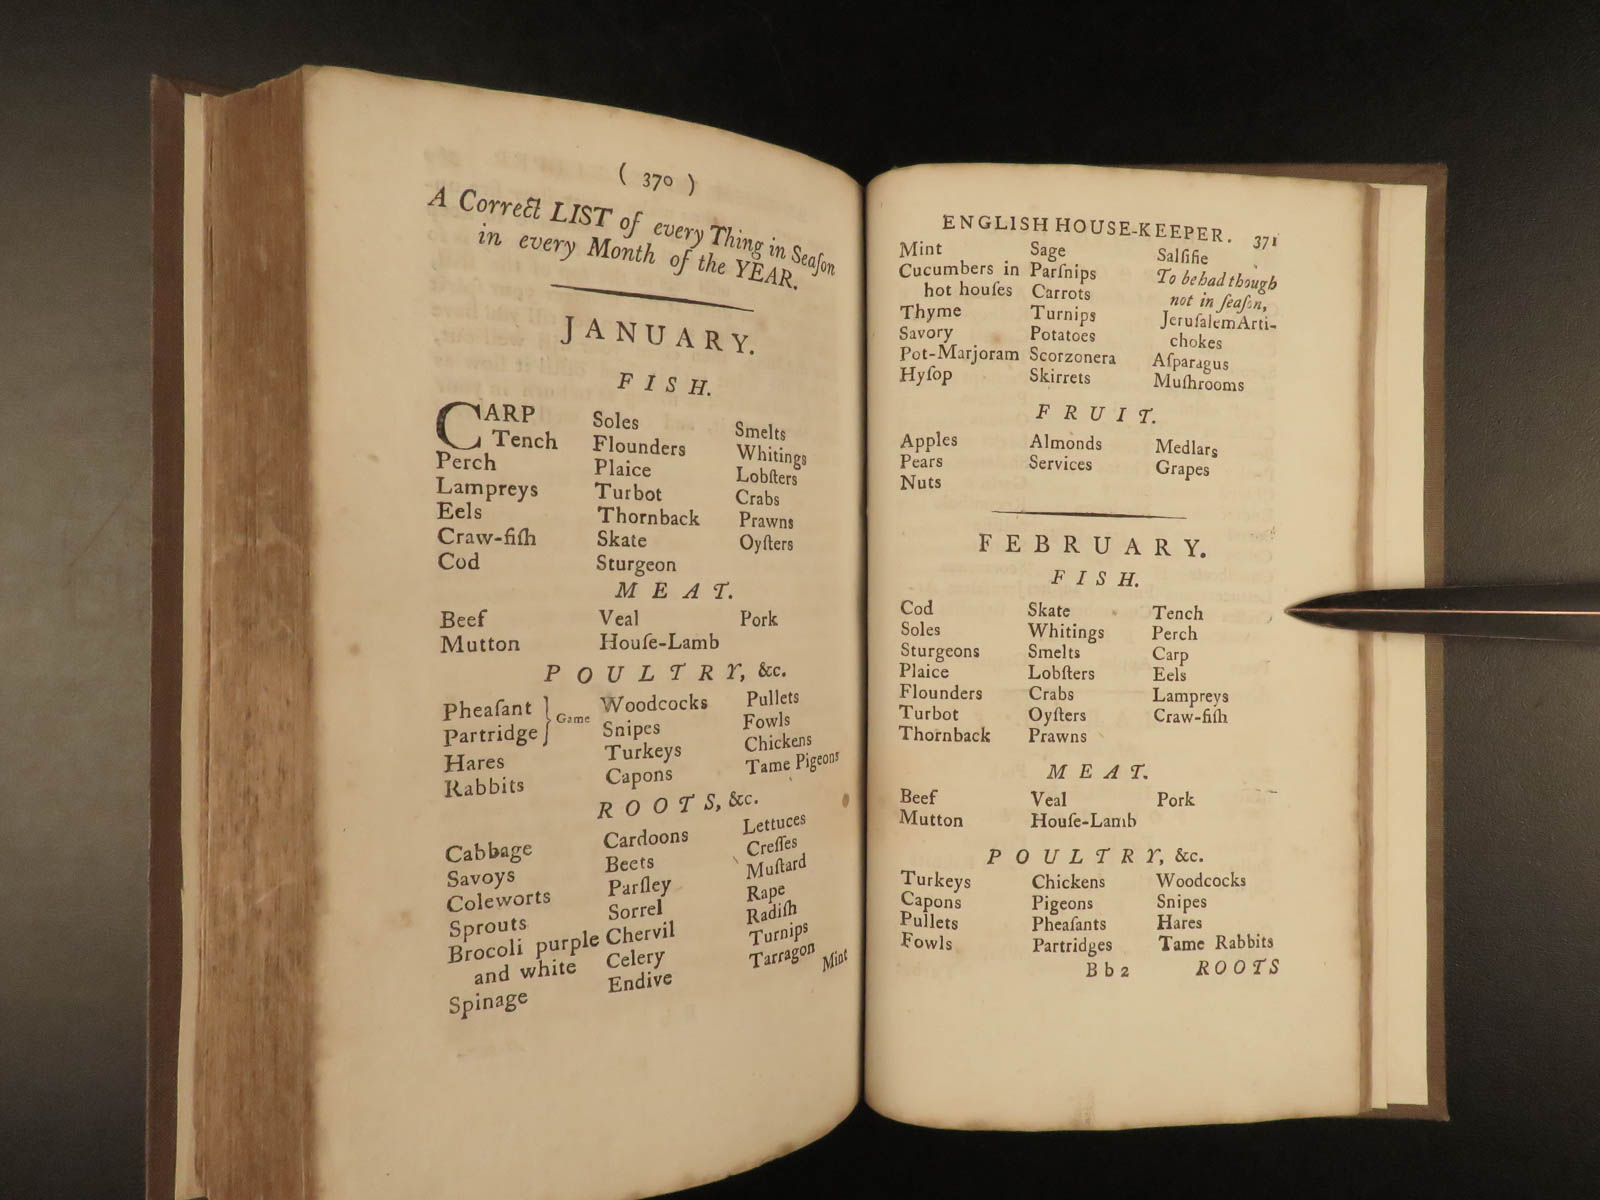 ( 370 )
A Correct LIST of every Thing in Seaſon
in every Month of the YEAR.
JANUARY.
FISH.
CARP
Tench
Perch
Lampreys
Eels
Craw-fiſh
Cod
Soles
Flounders
Plaice
Turbot
Thornback
Skate
Sturgeon
Smelts
Whitings
Lobſters
Crabs
Prawns
Oyſters
MEAT.
Beef
Mutton
Veal
Houſe-Lamb
Pork
POULTRY, &c.
Pheaſant
Partridge
Game
Hares
Rabbits
Woodcocks
Snipes
Turkeys
Capons
Pullets
Fowls
Chickens
Tame Pigeons
ROOTS, &c.
Cabbage
Savoys
Coleworts
Sprouts
Brocoli purple
and white
Spinage
Cardoons
Beets
Parſley
Sorrel
Chervil
Celery
Endive
Lettuces
Creſſes
Muſtard
Rape
Radiſh
Turnips
Tarragon
Mint
ENGLISH HOUSE-KEEPER. 371
Mint
Cucumbers in
hot houſes
Thyme
Savory
Pot-Marjoram
Hyſop
Sage
Parſnips
Carrots
Turnips
Potatoes
Scorzonera
Skirrets
Salſifie
To be had though
not in ſeaſon,
Jeruſalem Arti-
chokes
Aſparagus
Muſhrooms
FRUIT.
Apples
Pears
Nuts
Almonds
Services
Medlars
Grapes
FEBRUARY.
FISH.
Cod
Soles
Sturgeons
Plaice
Flounders
Turbot
Thornback
Skate
Whitings
Smelts
Lobſters
Crabs
Oyſters
Prawns
Tench
Perch
Carp
Eels
Lampreys
Craw-fiſh
MEAT.
Beef
Mutton
Veal
Houſe-Lamb
Pork
POULTRY, &c.
Turkeys
Capons
Pullets
Fowls
Chickens
Pigeons
Pheaſants
Partridges
Woodcocks
Snipes
Hares
Tame Rabbits
Bb2 ROOTS